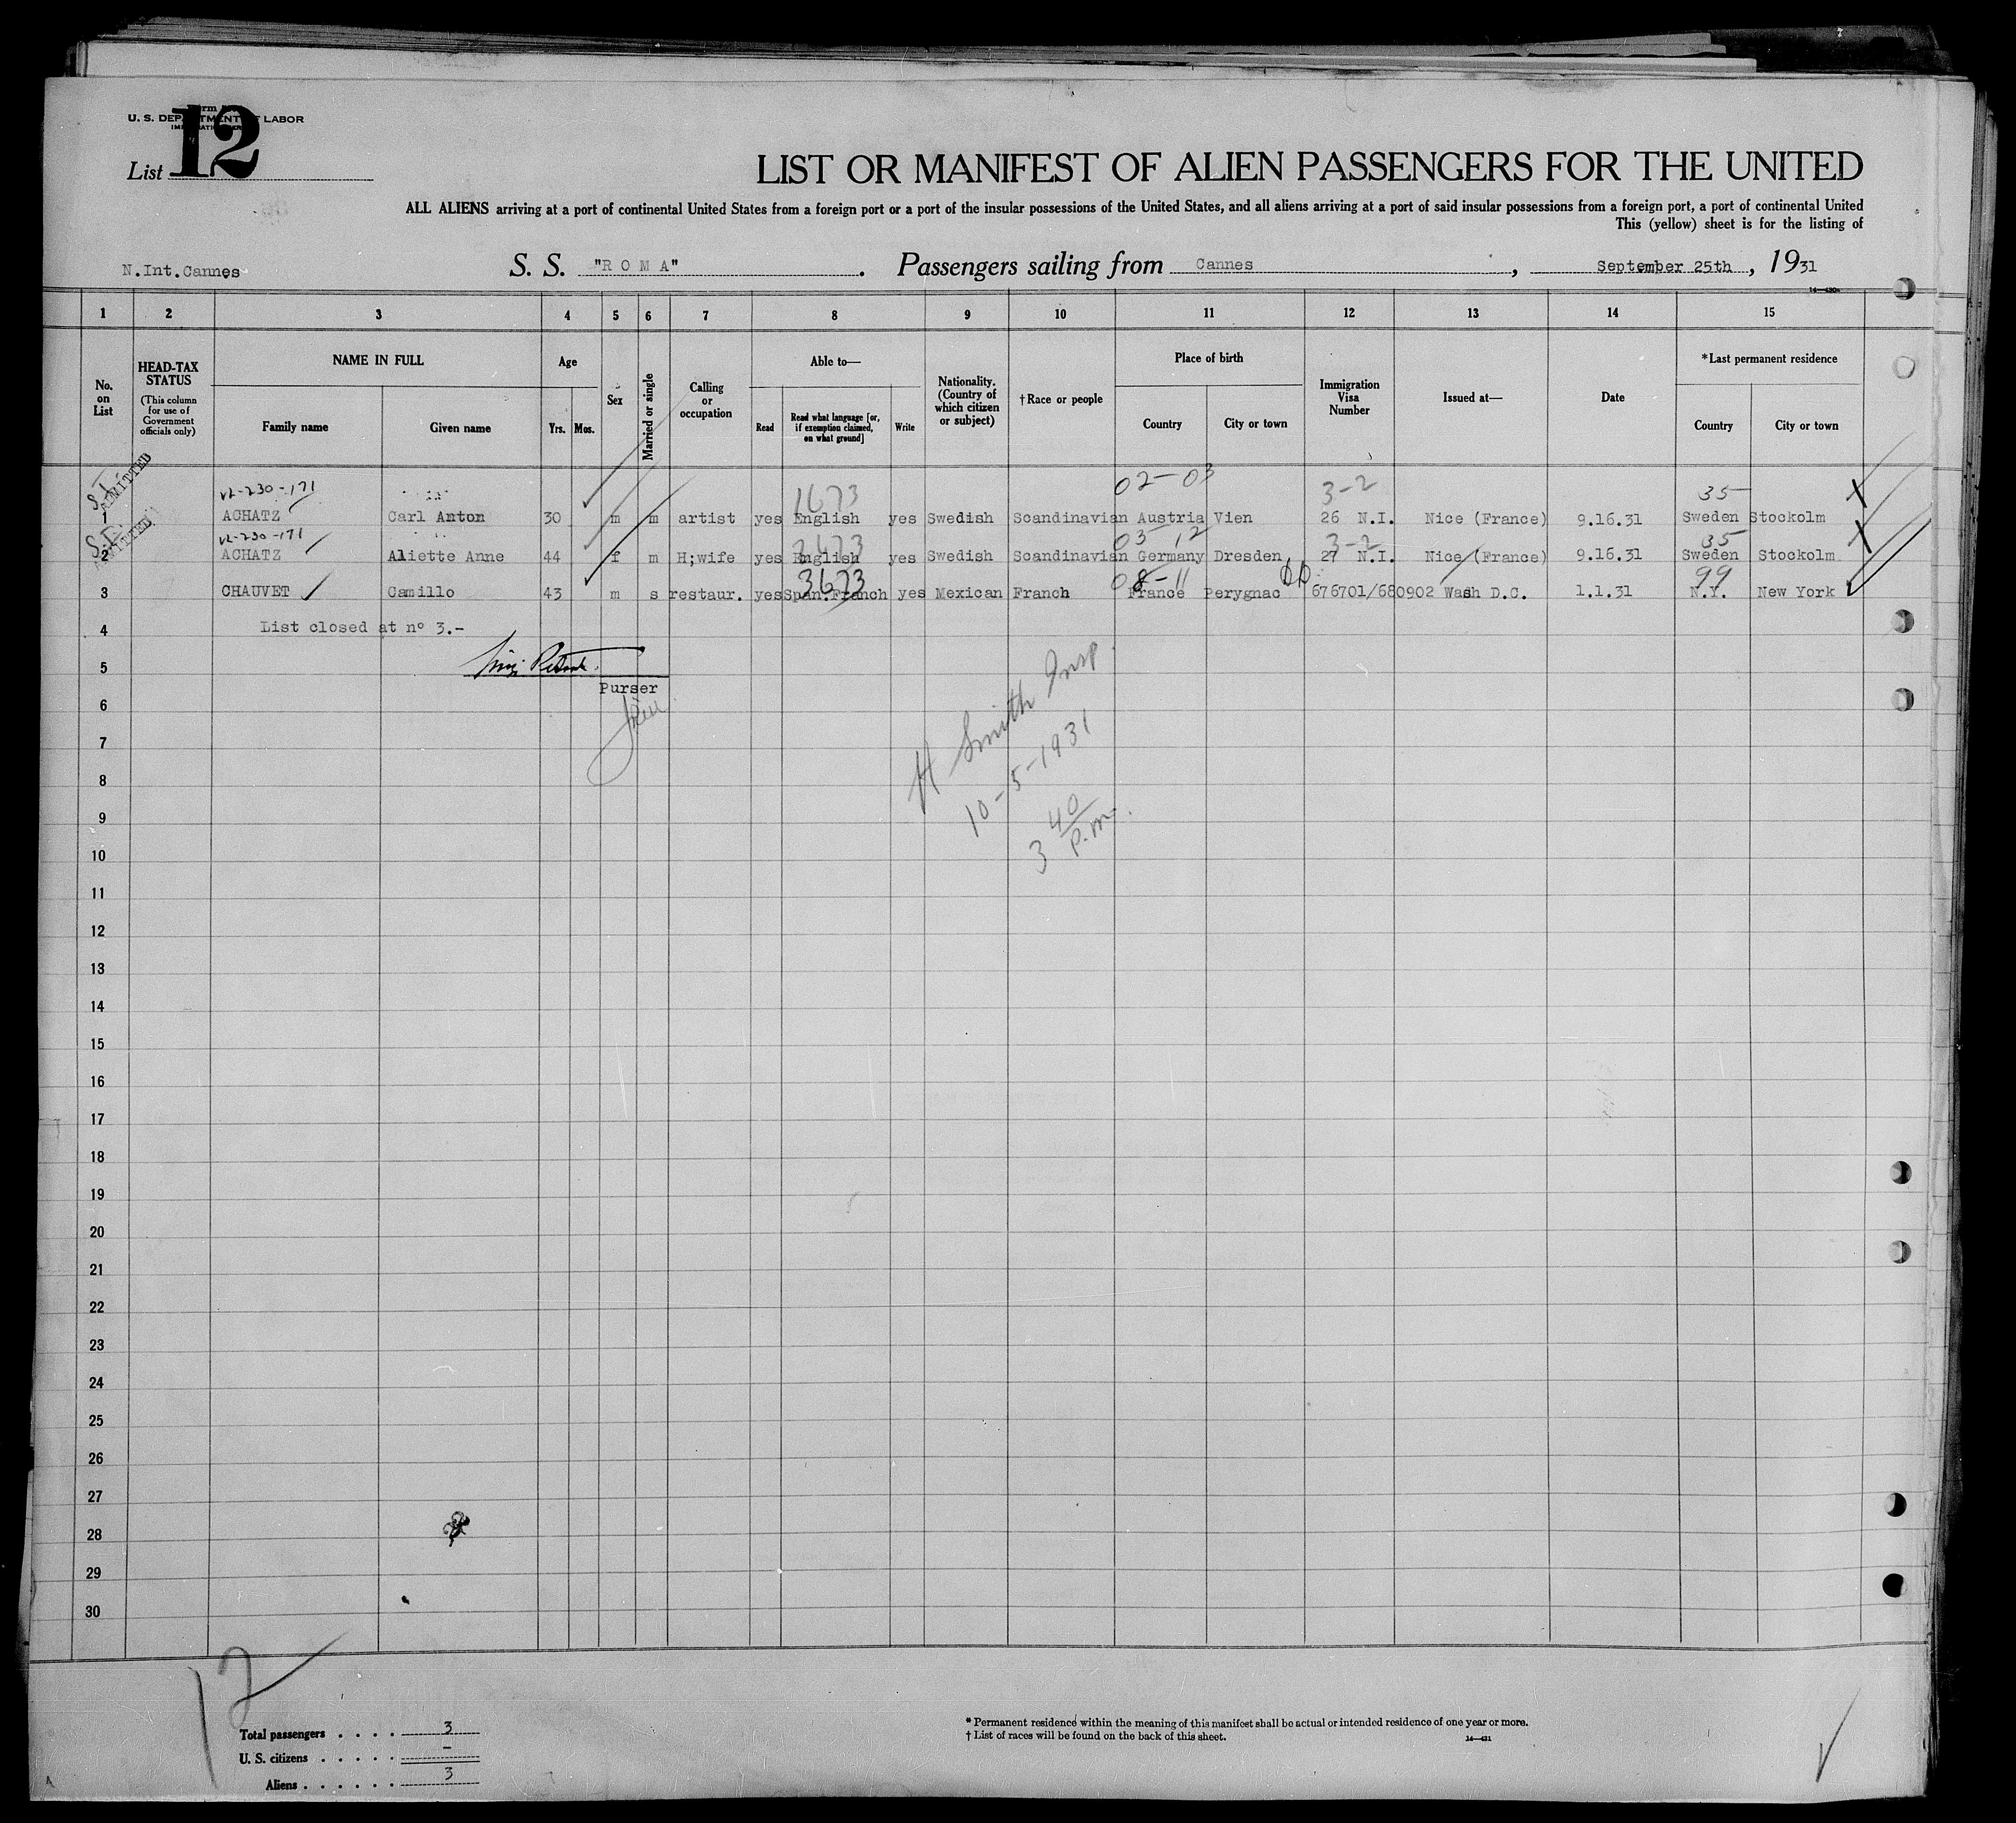 U. S. DEPARTMENT OF LABOR
List 12
LIST OR MANIFEST OF ALIEN PASSENGERS FOR THE UNITED
ALL ALIENS arriving at a port of continental United States from a foreign port or a port of the insular possessions of the United States, and all aliens arriving at a port of said insular possessions from a foreign port, a port of continental United
This (yellow) sheet is for the listing of
N.Int.Cannes S. S. "R O M A" . Passengers sailing from Cannes , September 25th , 1931
1 2 3 4 5 6 7 8 9 10 11 12 13 14 15
No. on List
HEAD-TAX STATUS (This column for use of Government officials only)
NAME IN FULL Family name Given name
Age Yrs. Mos.
Sex
Married or single
Calling or occupation
Able to— Read Read what language [or, if exemption claimed, on what ground] Write
Nationality. (Country of which citizen or subject)
†Race or people
Place of birth Country City or town
Immigration Visa Number
Issued at—
Date
*Last permanent residence Country City or town
ADMITTED 1673 02-03 3-2 35
1 ACHATZ Carl Anton 30 m m artist yes English yes Swedish Scandinavian Austria Vien 26 N.I. Nice (France) 9.16.31 Sweden Stockolm X
2673 03-12 3-2 35
2 ACHATZ Aliette Anne 44 f m H;wife yes English yes Swedish Scandinavian Germany Dresden 27 N.I. Nice (France) 9.16.31 Sweden Stockolm X
3673 08-11 99
3 CHAUVET Camillo 43 m s restaur. yes Span.Franch yes Mexican Franch France Perygnac 676701/680902 Wash D.C. 1.1.31 N.Y. New York
4 List closed at nº 3.-
5
Purser
6
H Smith Insp.
7
10-5-1931
8
9
3 40 P.m.
10
11
12
13
14
15
16
17
18
19
20
21
22
23
24
25
26
27
28
29
30
12
Total passengers . . . . 3
U. S. citizens . . . . . -
Aliens . . . . . . 3
* Permanent residence within the meaning of this manifest shall be actual or intended residence of one year or more.
† List of races will be found on the back of this sheet.
14—431